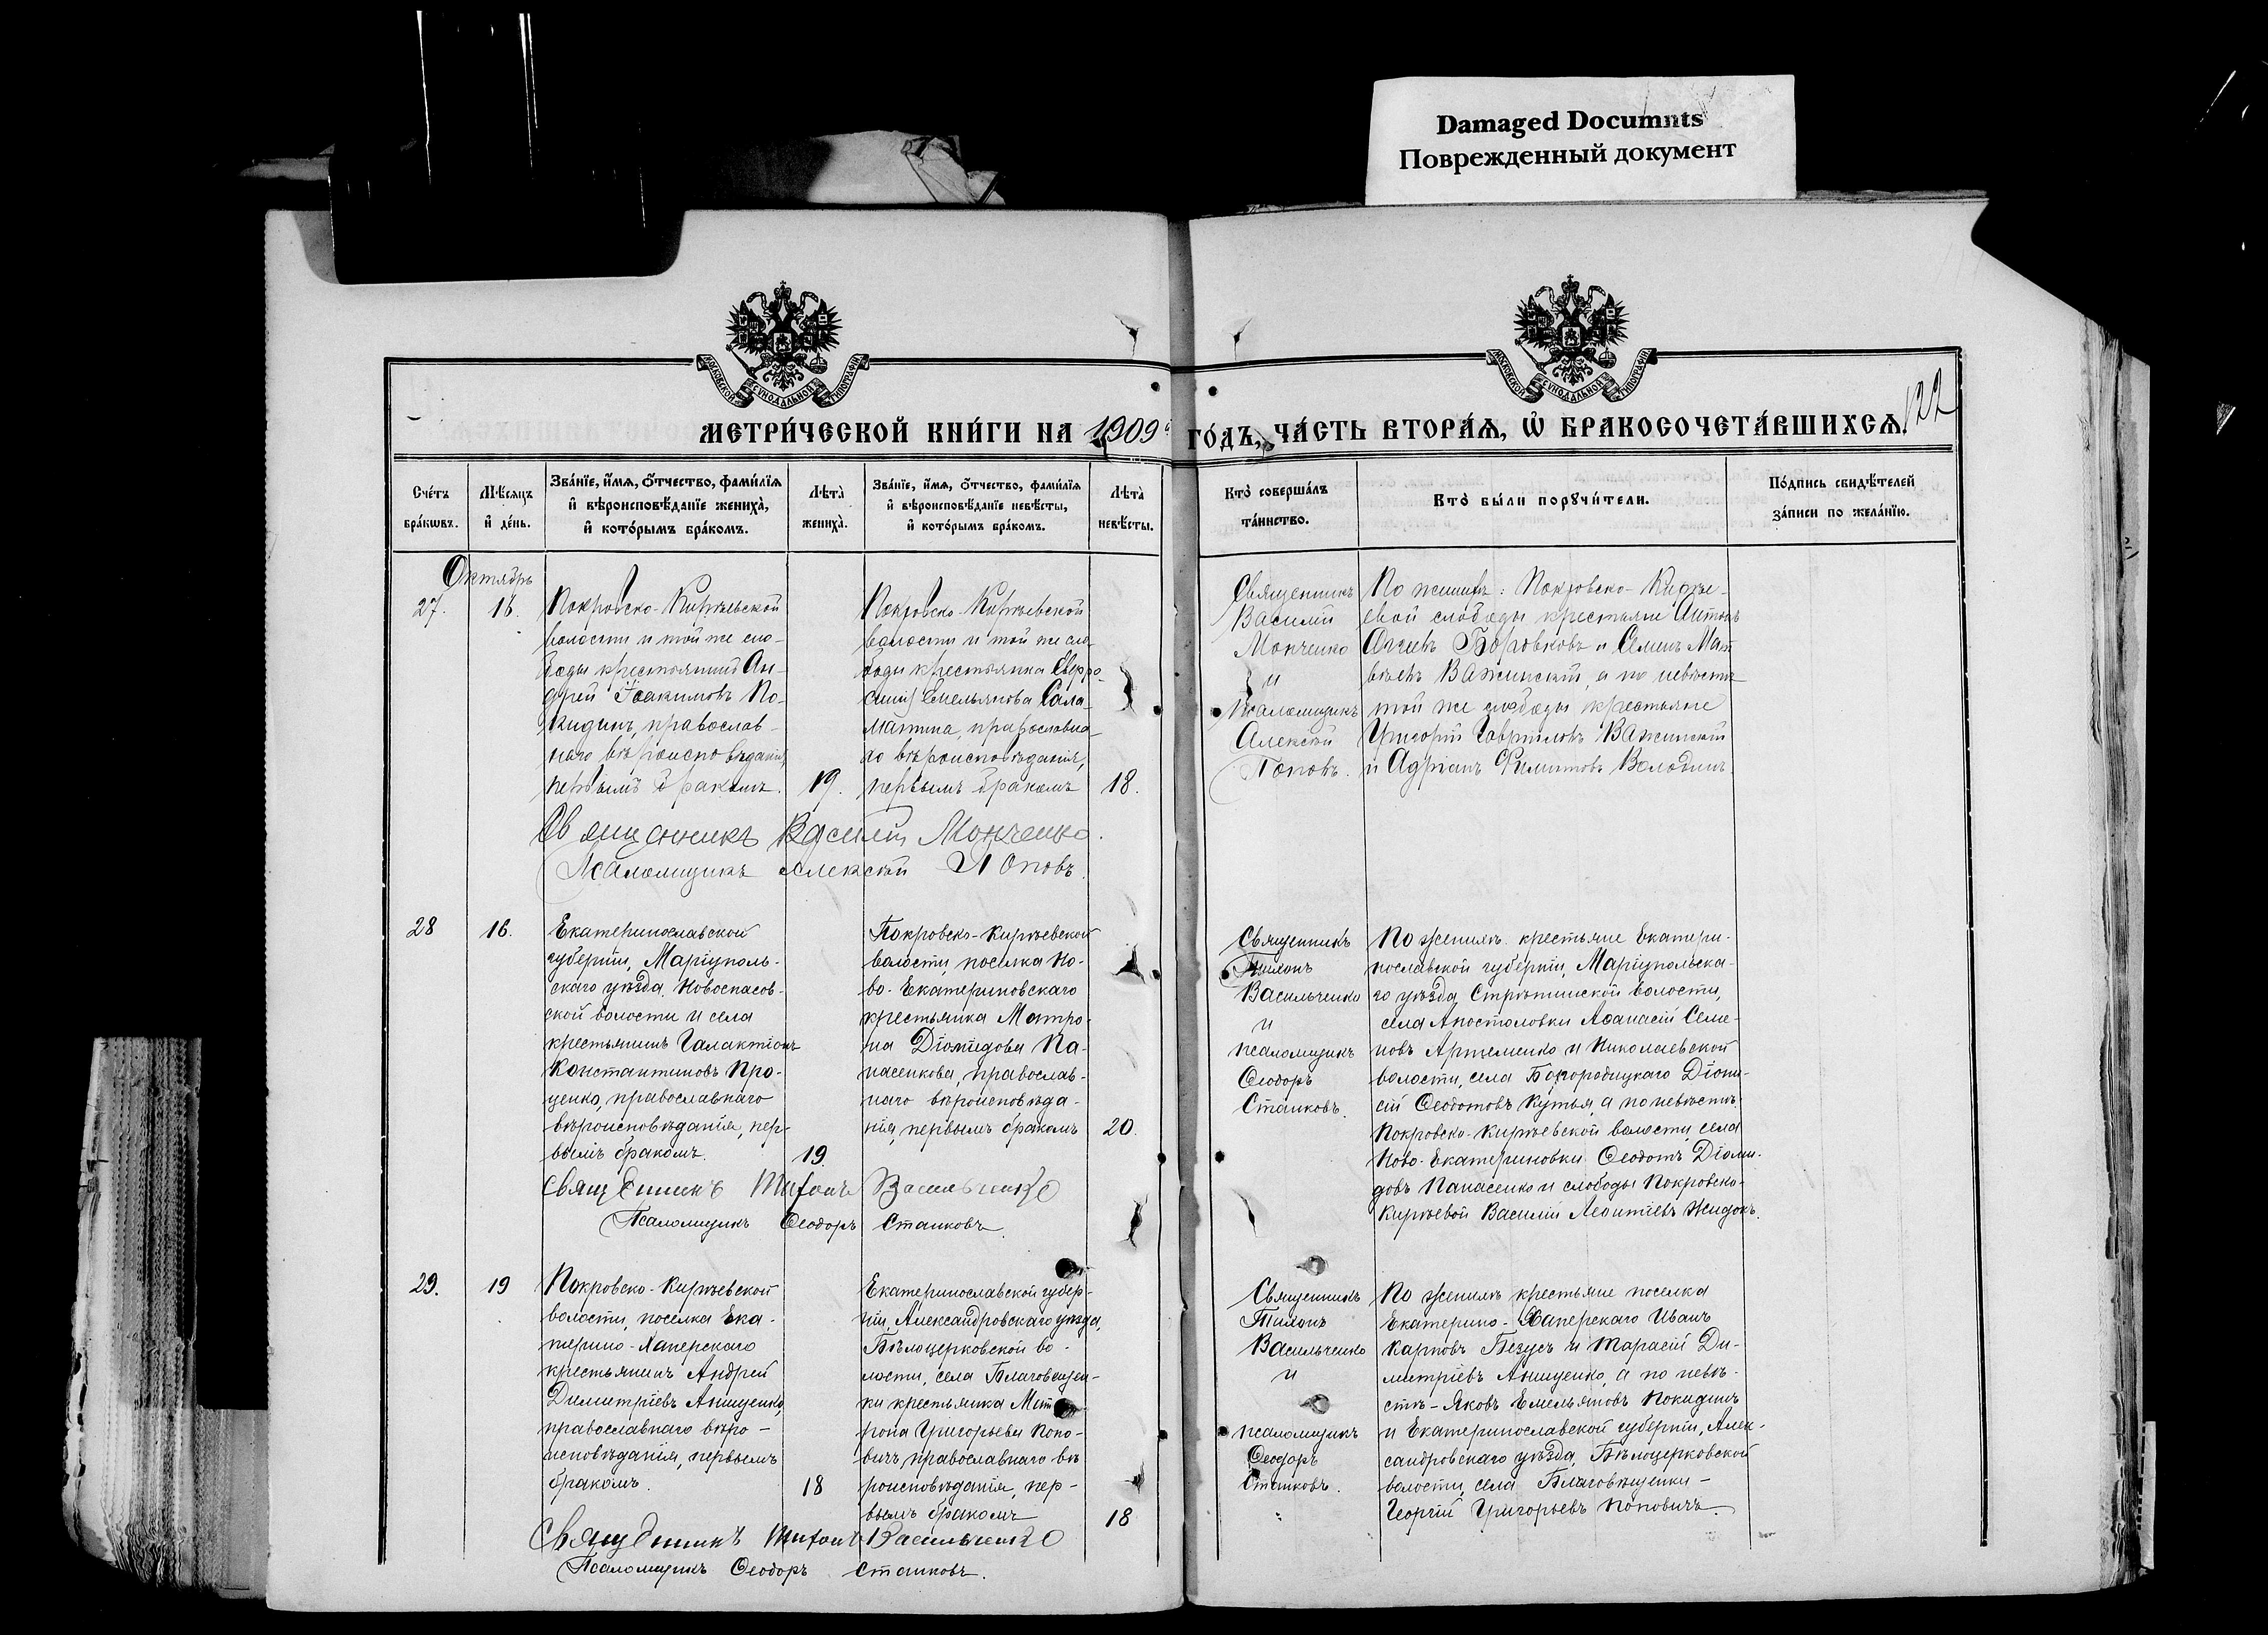 Damaged Documnts
Поврежденный документ
МОСКОВСКОЙ СУНОДАЛЬНОЙ ТИПОГРАФІИ
МОСКОВСКОЙ СУНОДАЛЬНОЙ ТИПОГРАФІИ
122
МЕТРИ́ЧЕСКОЙ КНИ́ГИ НА 1909й ГО́ДЪ, ЧА́СТЬ ВТОРА́Ѧ, Ѡ҆ БРАКОСОЧЕТА́ВШИХСѦ.
Сче́тъ
бра́кѡвъ.
Мѣ́сяцъ
и҆ де́нь.
Зва́нїе, и҆́мѧ, ѻ҆́тчество, фами́лїѧ
и҆ вѣроисповѣ́данїе жениха̀,
и҆ кото́рымъ бра́комъ.
Лѣта̀
жениха̀.
Зва́нїе, и҆́мѧ, ѻ҆́тчество, фами́лїѧ
и҆ вѣроисповѣ́данїе невѣ́сты,
и҆ кото́рымъ бра́комъ.
Лѣта̀
невѣ́сты.
Кто̀ соверша́лъ
та́инство.
Кто̀ бы́ли порꙋчи́тели.
По́дпись свидѣ́телей
за́писи по жела́нїю.
Октябрь
27.
16.
Покровско-Кирѣевской
волости и той же сло-
боды крестьянинъ Ан-
дрей Іоакимовъ По-
кидинъ, православ-
наго вѣроисповѣданія,
первымъ бракомъ.
19.
Покровско-Кирѣевской
волости и той же сло-
боды крестьянка Евфро-
синія Емельянова Сала-
матина, православна-
го вѣроисповѣданія,
первымъ бракомъ
18.
Священникъ
Василій
Монченко
и
Псаломщикъ
Алексѣй
Поповъ.
По женихѣ: Покровско-Кирѣе-
евой слободы крестьяне Антонъ
Боровковъ и Семенъ Мат
вѣевъ Важинскій, а по невѣстѣ
той же слободы крестьяне
Григорій Гавриловъ Важинскій
и Адріанъ Филиповъ Володинъ
Священникъ Василій Монченко.
Псаломщикъ Алексѣй Поповъ.
28
16.
Екатеринославской
губерніи, Маріуполь-
скаго уѣзда, Новоспасов-
ской волости и села
крестьянинъ Галактіонъ
Константиновъ Про-
ценко, православнаго
вѣроисповѣданія, пер-
вымъ бракомъ.
19.
Покровско-Кирѣевской
волости, поселка Но-
во-Екатериновскаго
крестьянка Матро-
на Діомидова Па-
насенкова, православ-
наго вѣроисповѣда-
нія, первымъ бракомъ
20.
Священникъ
Тихонъ
Васильченко
и
псаломщикъ
Ѳеодоръ
Станковъ.
По женихѣ крестьяне Екатери-
нославской губерніи, Маріупольска-
го уѣзда, Стрѣтинской волости,
села Апостоловки Аѳанасій Семе-
новъ Артеменко и Николаевской
волости, села Богородицкаго Діони-
сій Ѳеодотовъ Кутья, а по невѣстѣ:
Покровско-Кирѣевской волости, села
Ново-Екатериновки Ѳеодотъ Діоми-
довъ Панасенко и слободы Покровско-
Кирѣевой Василій Леонтіевъ Жидокъ.
Священникъ Тихонъ Васильченко
Псаломщикъ Ѳеодоръ Станковъ.
29.
19
Покровско-Кирѣевской
волости, поселка Ека-
терино-Хаперскаго
крестьянинъ Андрей
Димитріевъ Анищенко,
православнаго вѣро-
исповѣданія, первымъ
бракомъ.
18
Екатеринославской губер-
ніи, Александровскаго уѣзда,
Бѣлоцерковской во-
лости, села Благовещен-
ки крестьянка Мат
рона Григорьева Попо-
вичъ, православнаго вѣ
роисповѣданія, пер-
вымъ бракомъ
18
Священникъ
Тихонъ
Васильченко
и
псаломщикъ
Ѳеодоръ
Станковъ.
По женихѣ крестьяне поселка
Екатерино-Хаперскаго Иванъ
Карповъ Безусъ и Тарасій Ди-
митріевъ Анищенко, а по невѣ-
стѣ-Яковъ Емельяновъ Покидинъ
и Екатеринославской губерніи, Алек-
сандровскаго уѣзда, Бѣлоцерковской
волости, села Благовѣщенки-
Георгій Григорьевъ Поповичъ.
Священникъ Тихонъ Васильченко
Псаломщикъ Ѳеодоръ Станковъ.